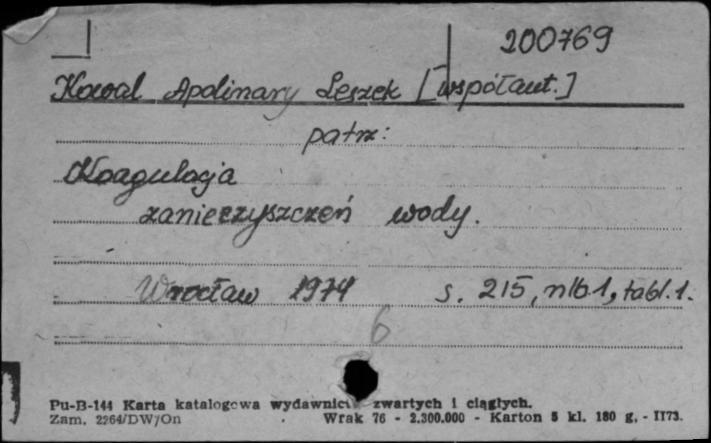 200769
Kowal Apolinary Leszek [współaut.]
patrz:
Koagulacja
zanieczyszczeń wody.
Wrocław 1974 s. 215, nlb. 1, tabl. 1.
6
Pu-B-144 Karta katalogowa wydawnictw zwartych i ciągłych.
Zam. 2264/DW/On Wrak 76 - 2.300.000 - Karton 5 kl. 180 g. - II73.